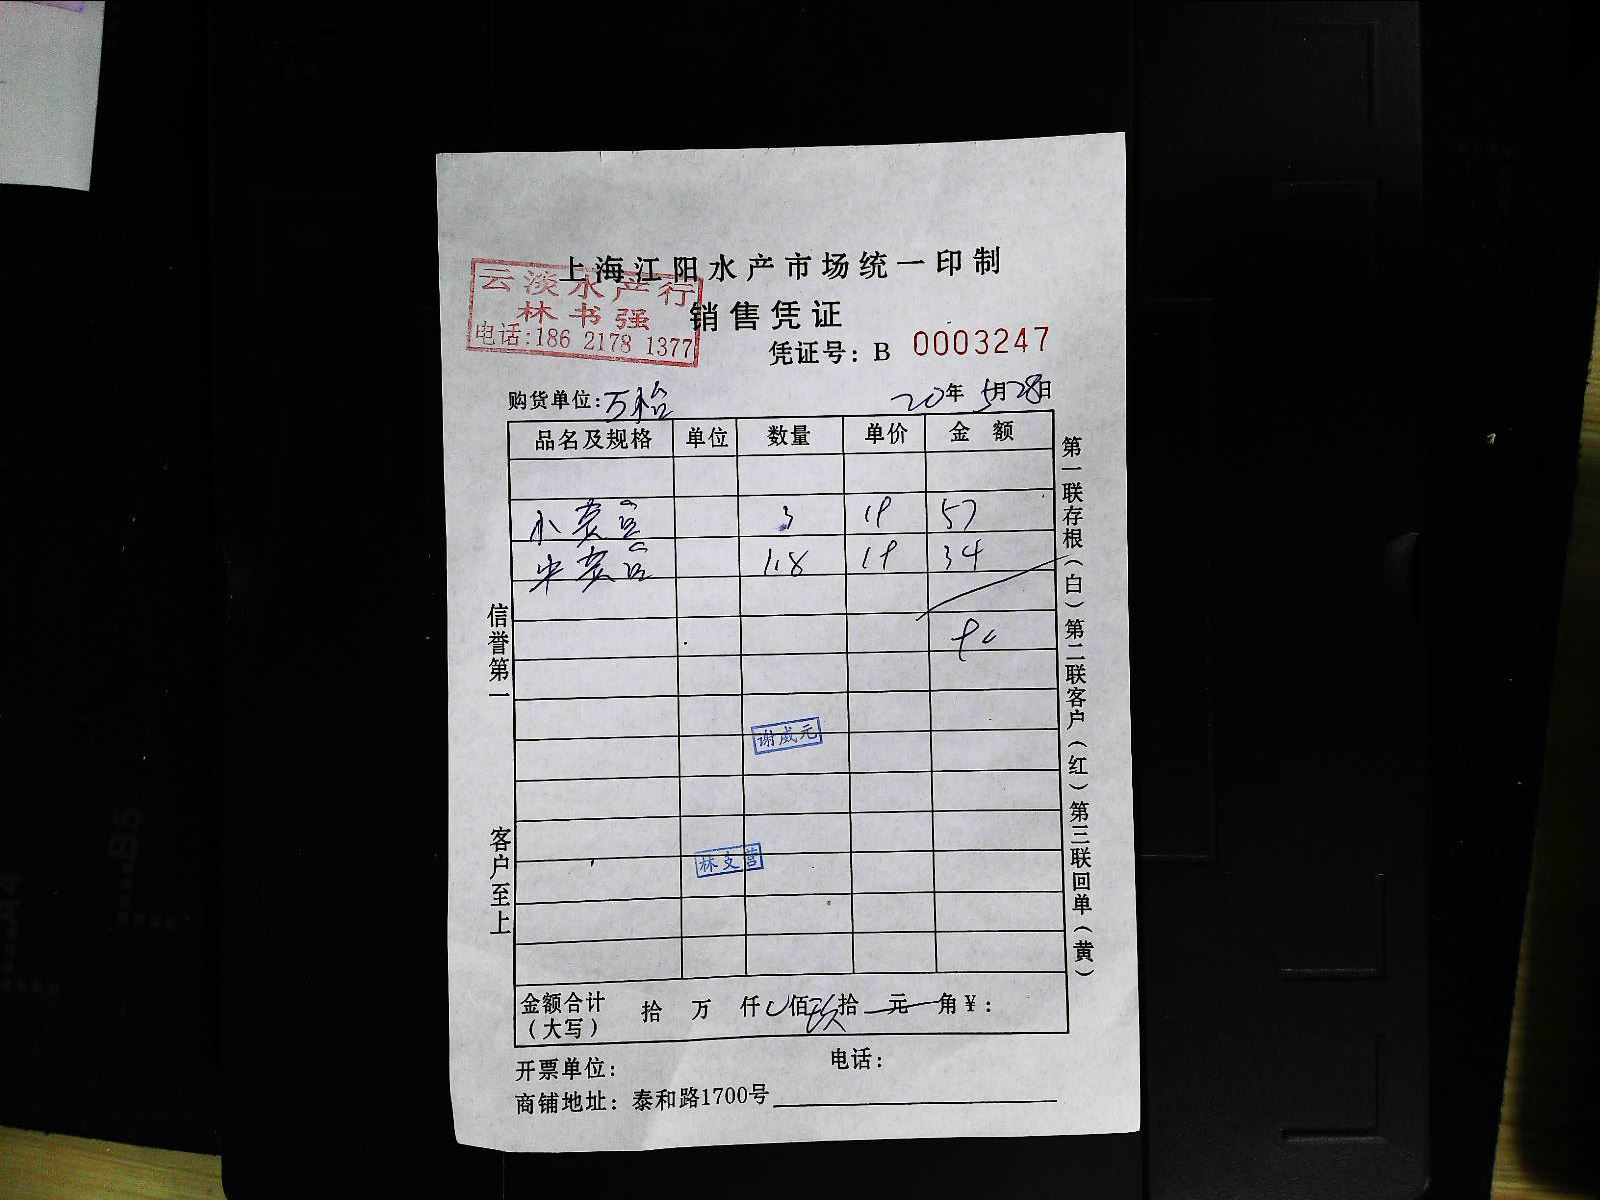 上海江阳水产市场统一印制
云淡水产行
林书强
电话:186 2178 1377
销售凭证
凭证号: B 0003247
购货单位:万怡
20年5月28日
品名及规格 单位 数量 单价 金额
小 3 19 57
1.8 19 34
谢成元
林支营
信誉第一
客户至上
第一联存根(白)第二联客户(红)第三联回单(黄)
金额合计(大写) 拾 万 仟 佰 玖拾 元 角¥:
开票单位: 电话:
商铺地址: 泰和路1700号